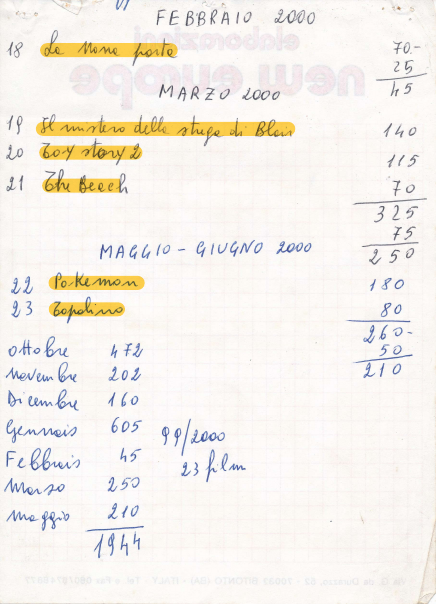 FEBBRAIO 2000
18 La Nona porta 70.-
25
45
MARZO 2000
19 Il mistero della strega di Blair 140
20 Toy story 2 115
21 The Beach 70
325
75
250
MAGGIO - GIUGNO 2000
22 Pokemon 180
23 Topolino 80
260-
50
210
ottobre 472
novembre 202
Dicembre 160
Gennaio 605
Febbraio 45
Marzo 250
maggio 210
1944
99/2000
23 film
elaborazioni
new europe